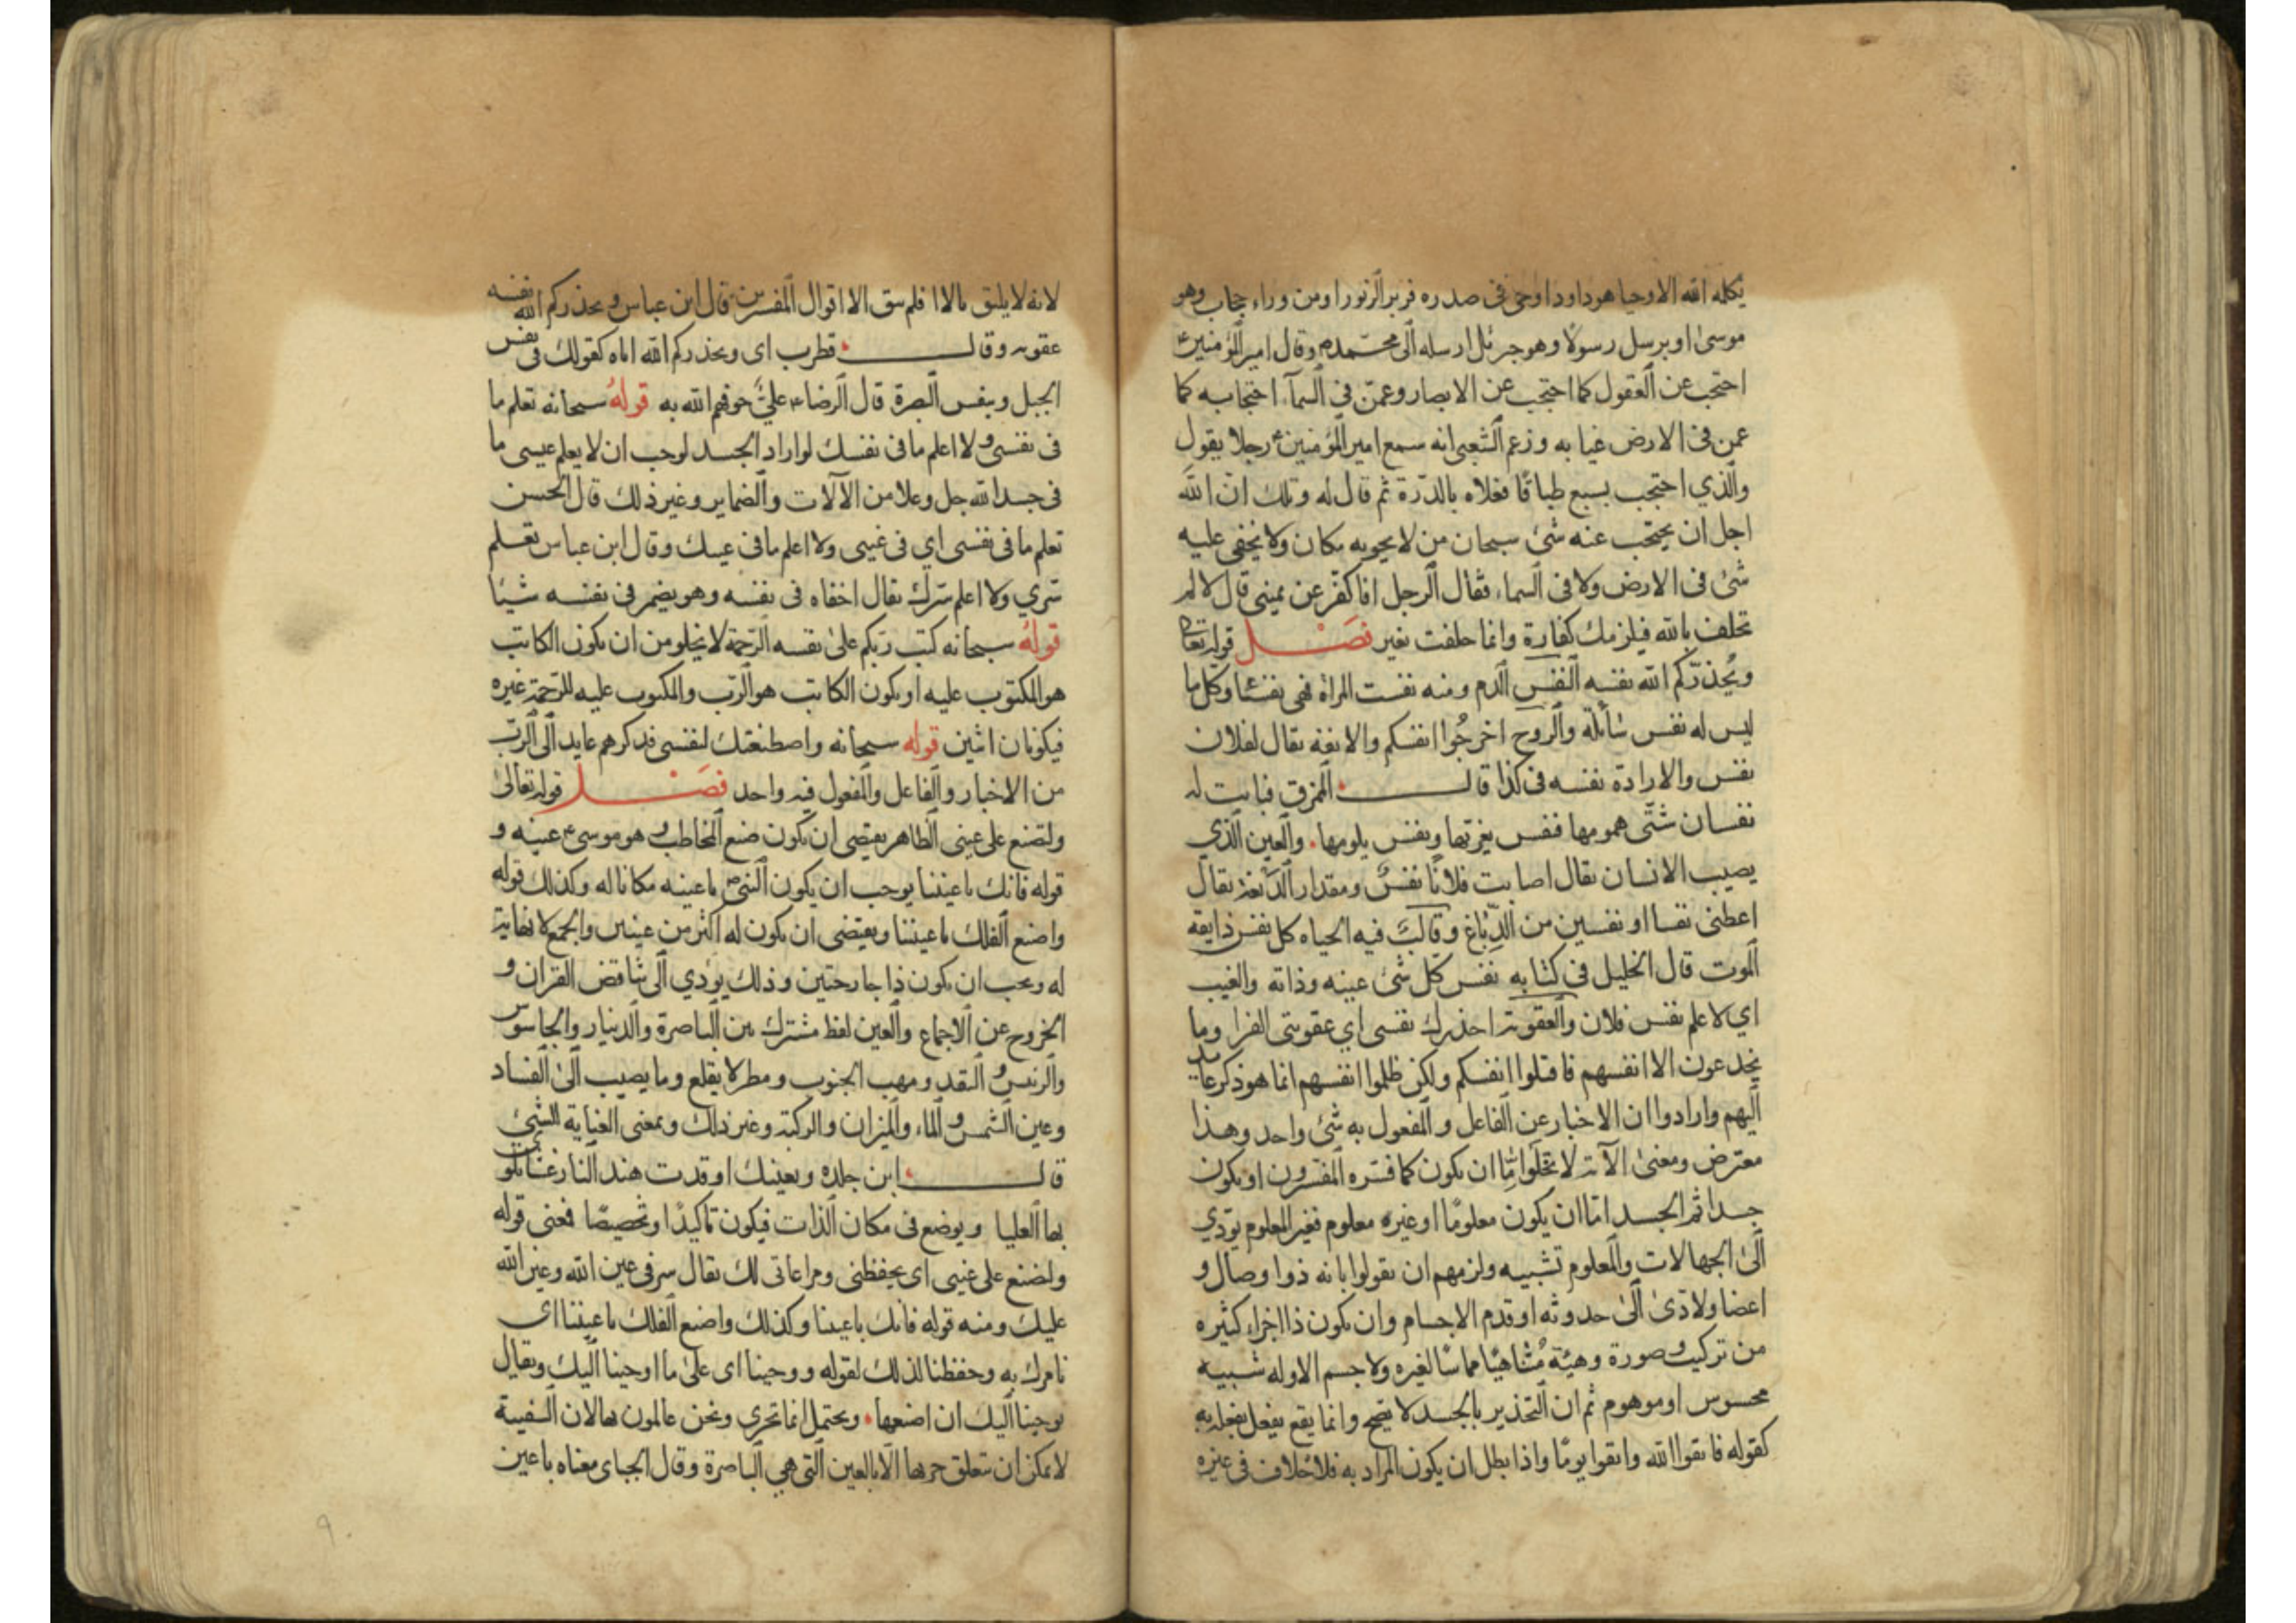 يكلمه الله الا وحيا هو داود اوحى فى صدره فزبر الزبور او من وراء حجاب وهو
موسى او يرسل رسولا وهو جبرئيل ارسله الى محمد وقال امير المؤمنين
احتجب عن العقول كما احتجب عن الابصار وعمن فى السماء احتجابه كما
عمن فى الارض غيابه وزعم الشعبى انه سمع امير المؤمنين رجلا يقول
والذي احتجب بسبع طباقا فعلاه بالدرة ثم قال له ويلك ان الله
اجل ان يحتجب عنه شئ سبحان من لا يحويه مكان ولا يخفى عليه
شئ فى الارض ولا فى السماء فقال الرجل افاكفر عن يمينى قال لا لم
تحلف بالله فيلزمك كفارة وانما حلفت بغير فصل قوله تعالى
ويحذركم الله نفسه النفس الدم ومنه نفست المراة فهى نفساء وكل ما
ليس له نفس سائلة والروح اخرجوا انفسكم والانفة يقال لفلان
نفس والارادة نفسه فى كذا قال الممزق فباتت له
نفسان شتى همومها فنفس يعزيها ونفس يلومها والعين الذي
يصيب الانسان يقال اصابت فلانا نفس ومقدار الدبغة يقال
اعطنى نفسا او نفسين من الدباغ وقالب فيه الحياه كل نفس ذايقة
الموت قال الخليل فى كتابه نفس كل شئ عينه وذاته والغيب
اي لا علم نفس فلان والعقوبة احذرك نفسى اي عقوبتى الفرا وما
يخدعون الا انفسهم فاقتلوا انفسكم ولكن ظلموا انفسهم انما هو ذكر عايد
اليهم وارادوا ان الاخبار عن الفاعل والمفعول به شئ واحد وهذا
معترض ومعنى الآية لا تخلوا اما ان يكون كما فسره المفسرون او يكون
جسدا ثم الجسد اما ان يكون معلوما او غيره معلوم فغير المعلوم يؤدي
الى الجهالات والمعلوم تشبيه ولزمهم ان يقولوا بانه ذو اوصال و
اعضا ولادى الى حدوثه او قدم الاجسام وان يكون ذا اجزاء كثيره
من تركيب وصورة وهيئة متناهيا مماسا لغيره ولا جسم الا وله شبيه
محسوس او موهوم ثم ان التحذير بالجسد لا يصح وانما يقع بفعل يفعله به
كقوله فاتقوا الله واتقوا يوما واذا بطل ان يكون المراد به فلا خلاف فى غيره
لانه لا يليق بالا فلم يبق الا اقوال المفسرين قال ابن عباس ويحذركم الله نفسه
عقوبته وقال قطرب اى ويحذركم الله اياه كقولك فى نفس
الجبل وبنفس البصرة قال الرضا على خوفهم الله به قوله سبحانه تعلم ما
فى نفسى ولا اعلم ما فى نفسك لو اراد الجسد لوجب ان لا يعلم عيسى ما
فى جسد الله جل وعلا من الآلات والضماير وغير ذلك قال الحسن
تعلم ما فى نفسى اي فى غيبى ولا اعلم ما فى غيبك وقال ابن عباس تعلم
سري ولا اعلم سرك يقال اخفاه فى نفسه وهو يضمر فى نفسه شيئا
قوله سبحانه كتب ربكم على نفسه الرحمة لا يخلو من ان يكون الكاتب
هو المكتوب عليه او يكون الكاتب هو الرب والمكتوب عليه للرحمة غيره
فيكونان اثنين قوله سبحانه واصطنعتك لنفسى فذكرهم عايد الى الرب
من الاخبار والفاعل والمفعول فيه واحد فصل قوله تعالى
ولتصنع على عينى الظاهر يقتضى ان يكون صنع المخاطب وهو موسى عينه و
قوله فانك باعيننا يوجب ان يكون النبى باعينه مكانا له وكذلك قوله
واصنع الفلك باعيننا ويقتضى ان يكون له اكثر من عينين والجمع لا نهاية
له ويجب ان يكون ذا جارحتين وذلك يؤدي الى تناقض القران و
الخروج عن الاجماع والعين لفظ مشترك بين الباصرة والدينار والجاسوس
والرئيس والنقد ومهب الجنوب ومطر لا يقلع وما يصيب الى الفساد
وعين الشمس والماء والميزان والركبة وغير ذلك وبمعنى العناية الشئ
قال ابن حلزه وبعينيك اوقدت هند النار تلو
بها العليا ويوضع فى مكان الذات فيكون تاكيدا وتخصيصا فمعنى قوله
ولتصنع على عينى اى بحفظنى ومراعاتى لك يقال سر فى عين الله وعين الله
عليك ومنه قوله فانك باعيننا وكذلك واصنع الفلك باعيننا اى
نامرك به وحفظنا لذلك لقوله ووحينا اى على ما اوحينا اليك ويقال
بوحينا اليك ان اصنعها ويحتمل انما تجري ونحن عالمون بها لان السفينة
لا يمكن ان يتعلق جريها الا بالعين التى هي الباصرة وقال الجباى معناه باعين